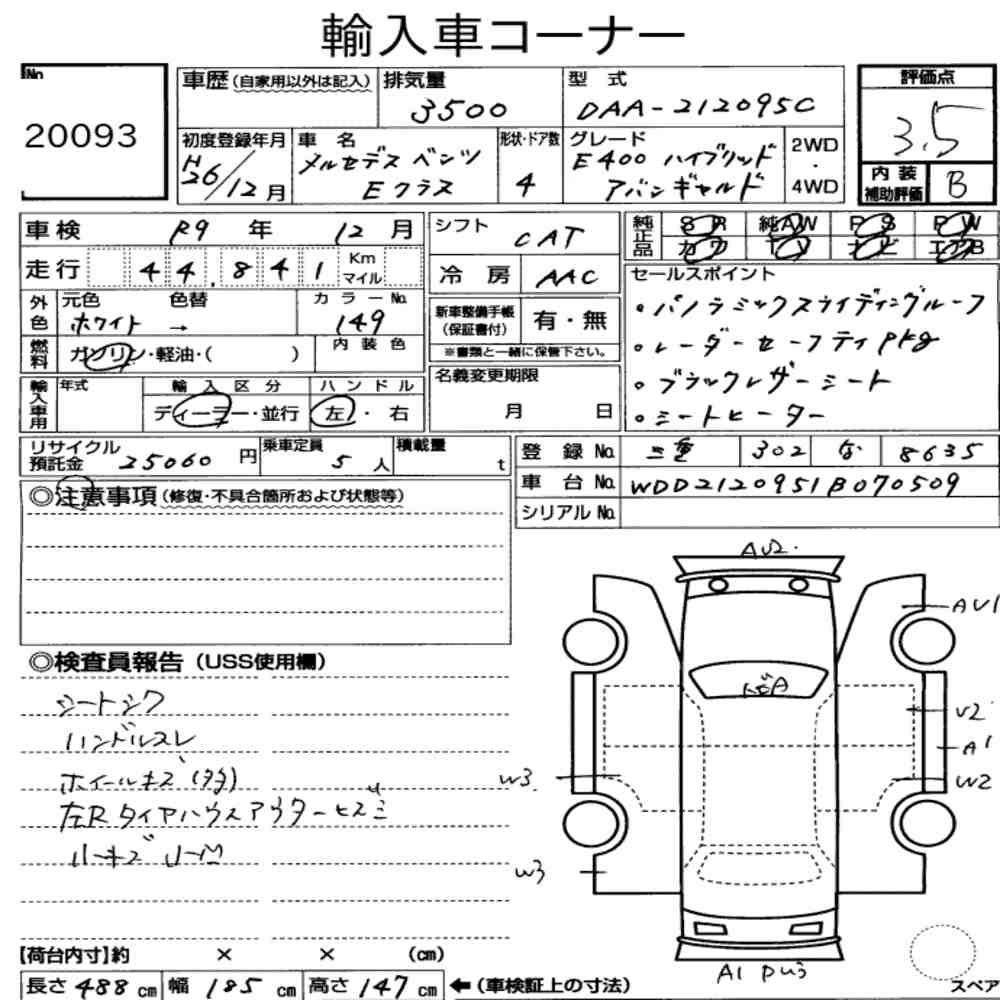 輸入車コーナー
No
20093
車歴 (自家用以外は記入)
排気量
3500
型式
DAA-212095C
評価点
3.5
初度登録年月
H26/12月
車名
メルセデス ベンツ
Eクラス
形状・ドア数
4
グレード
E400 ハイブリッド
アバンギャルド
2WD
・
4WD
内装
補助評価
B
車検 R9 年 12 月
シフト CAT
純正品
SR 純AW PS PW
カワ TV ナビ エアB
走行 44,841 Km マイル
冷房 AAC
セールスポイント
・パノラミックスライディングルーフ
・レーダーセーフティPkg
・ブラックレザーシート
・シートヒーター
外色
元色 色替
ホワイト →
カラーNo.
149
新車整備手帳
(保証書付)
有・無
※書類と一緒に保管下さい。
燃料
ガソリン・軽油・( )
内装色
名義変更期限
月 日
輸入車用
年式
輸入区分
ディーラー・並行
ハンドル
左・右
リサイクル
預託金
25060 円
乗車定員
5 人
積載量
t
登録No. 三重 302 な 8635
車台No. WDD2120951B070509
シリアルNo.
◎注意事項 (修復・不具合箇所および状態等)
◎検査員報告 (USS使用欄)
シートシワ
ハンドルスレ
ホイールキズ(多)
左Rタイヤハウスアウターヒズミ
AU2.
AU1
U2
A1
W2
W3
W3
A1 PU3
スペア
【荷台内寸】約 × × (cm)
長さ 488 cm 幅 185 cm 高さ 147 cm ←(車検証上の寸法)